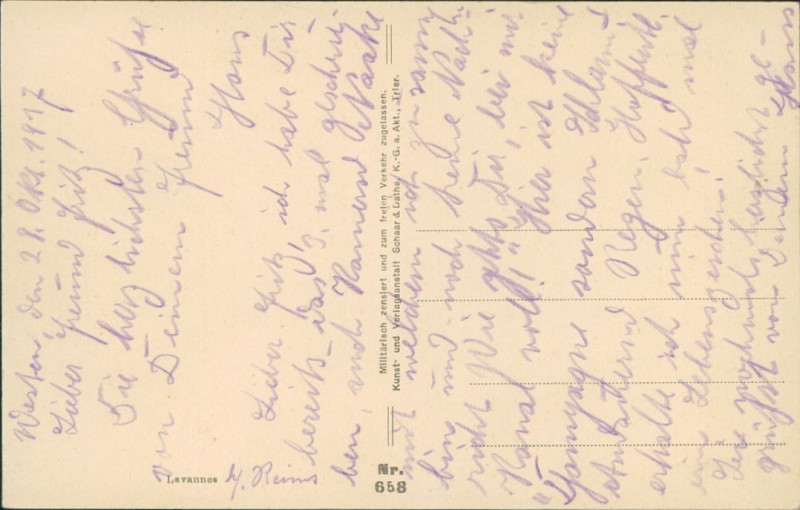 Westen, den 28. Okt. 1917
Lieber Freund Fritz!
Die herzlichsten Grüße
von Deinem Freund
Hans
Lieber Fritz, ich habe Dir
bereits das 3. mal geschrie-
ben, auch Kamerad
mit welchem ich zusamm
bin und noch keine Nachr
richt. Wie gehts Dir, bei mir
Kanal voll!" Hier ist keine
"Champagne sondern Schlamm
u. Regen. Hoffentl.
erhalte ich nun bald mal
ein Lebenszeichen!
Sei nochmals herzlichst ge-
grüßt von Deinem Hans
Militärisch zensiert und zum freien Verkehr zugelassen.
Kunst- und Verlagsanstalt Schaar & Dathe, K.-G. a. Akt., Trier.
Lavannes b/. Reims
Nr.
658